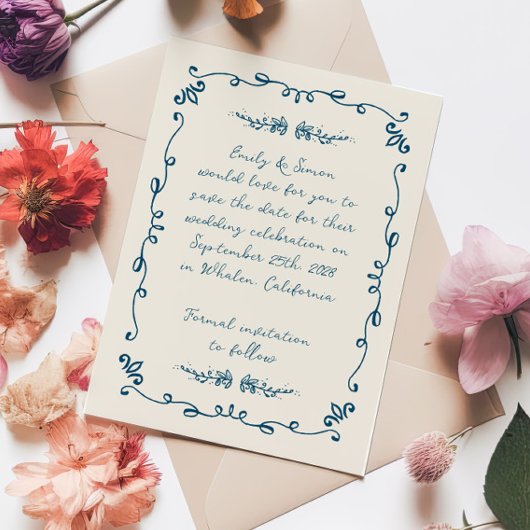 Emily & Simon
would love for you to
save the date for their
wedding celebration on
September 25th, 2028
in Whalen, California
Formal invitation
to follow